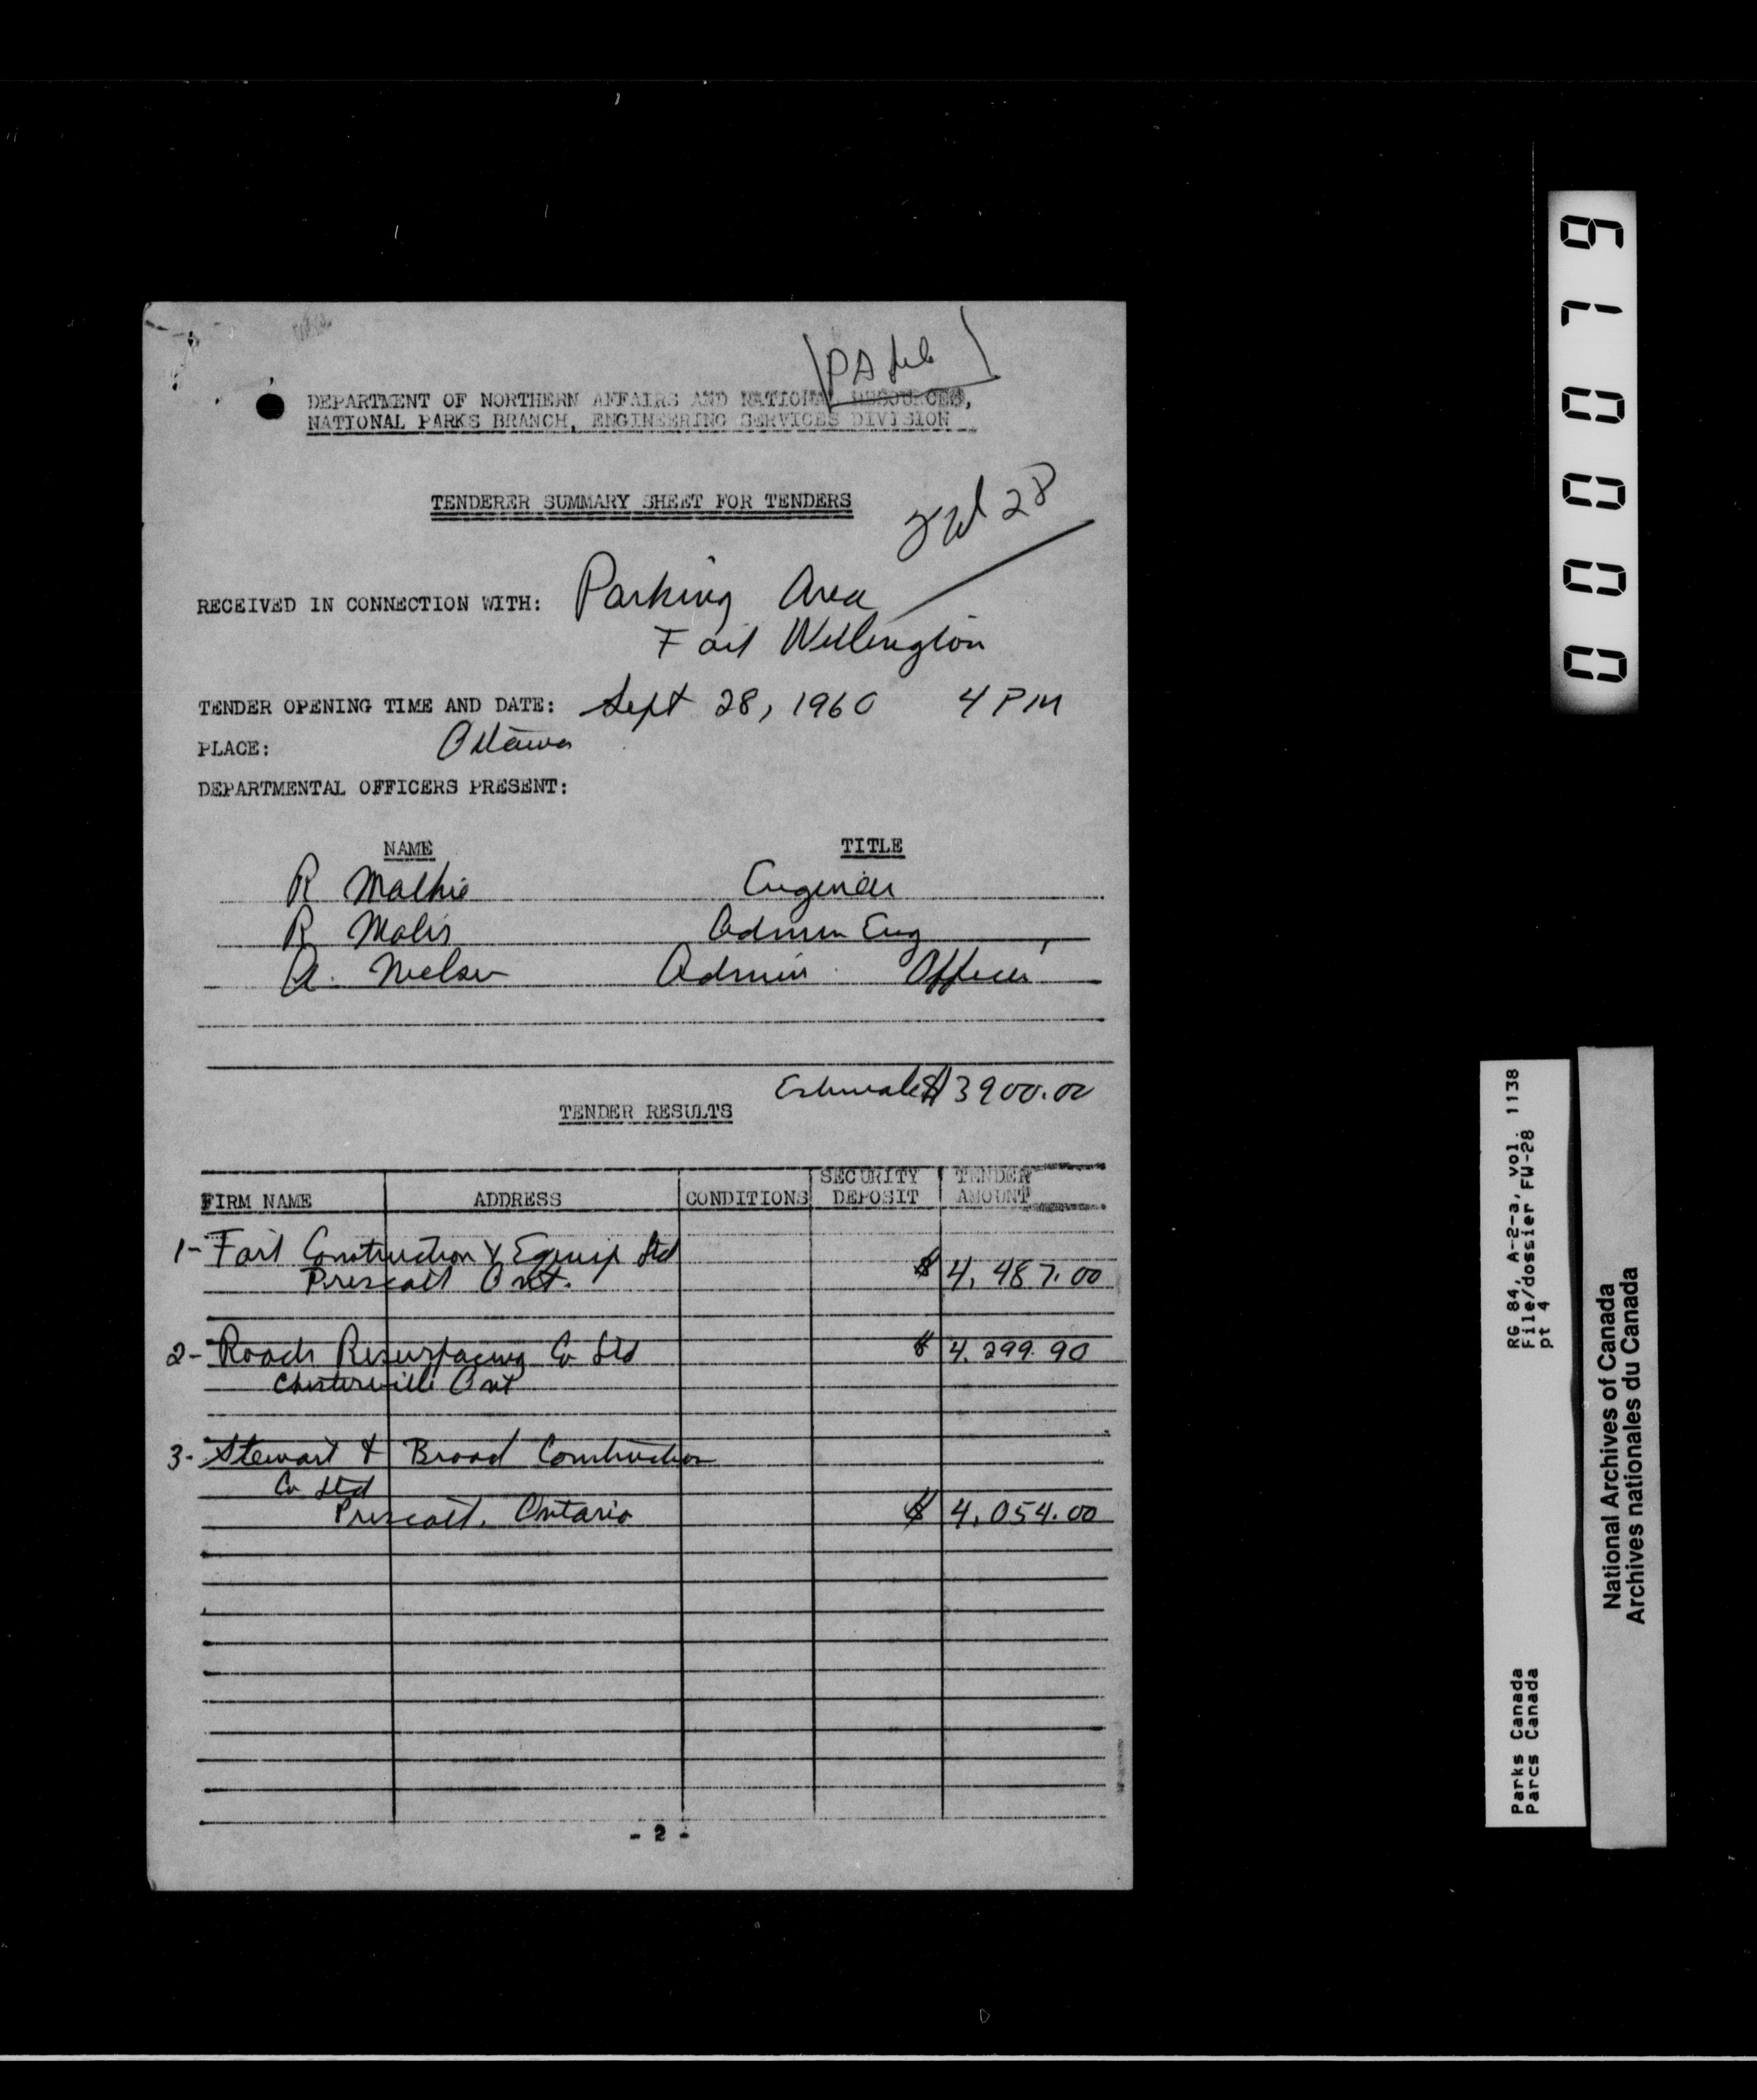 PA file
DEPARTMENT OF NORTHERN AFFAIRS AND NATIONAL RESOURCES,
NATIONAL PARKS BRANCH, ENGINEERING SERVICES DIVISION
TENDERER SUMMARY SHEET FOR TENDERS
28
RECEIVED IN CONNECTION WITH: Parking Area
Fort Wellington
TENDER OPENING TIME AND DATE: Sept 28, 1960 4 PM
PLACE: Ottawa
DEPARTMENTAL OFFICERS PRESENT:
NAME TITLE
R Mathie Engineer
R Malis Admin Eng
A. Nielsen Admin. Officer
Estimate $3900.00
TENDER RESULTS
FIRM NAME ADDRESS CONDITIONS SECURITY DEPOSIT TENDER AMOUNT
1- Fort Construction & Equip Ltd
Prescott Ont. $ 4,487.00
2- Roads Resurfacing Co Ltd $ 4,299.90
Chesterville Ont
3- Stewart & Broad Construction
Co Ltd
Prescott, Ontario $ 4,054.00
- 2 -
000079
RG 84, A-2-a, vol. 1138
File/dossier FW-28
pt 4
Parks Canada
Parcs Canada
National Archives of Canada
Archives nationales du Canada